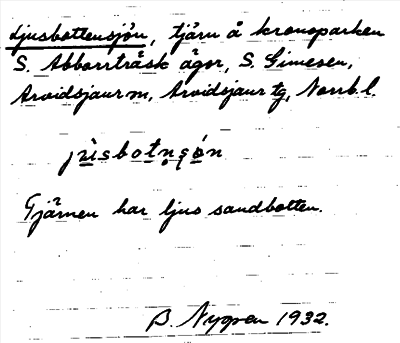 Ljusbottensjön, tjärn å kronoparken
S. Abborrträsk ägor, S. Gimegen,
Arvidsjaur m, Arvidsjaur tg, Norrb. l.
Tjärnen har ljus sandbotten.
B. Nygren 1932.